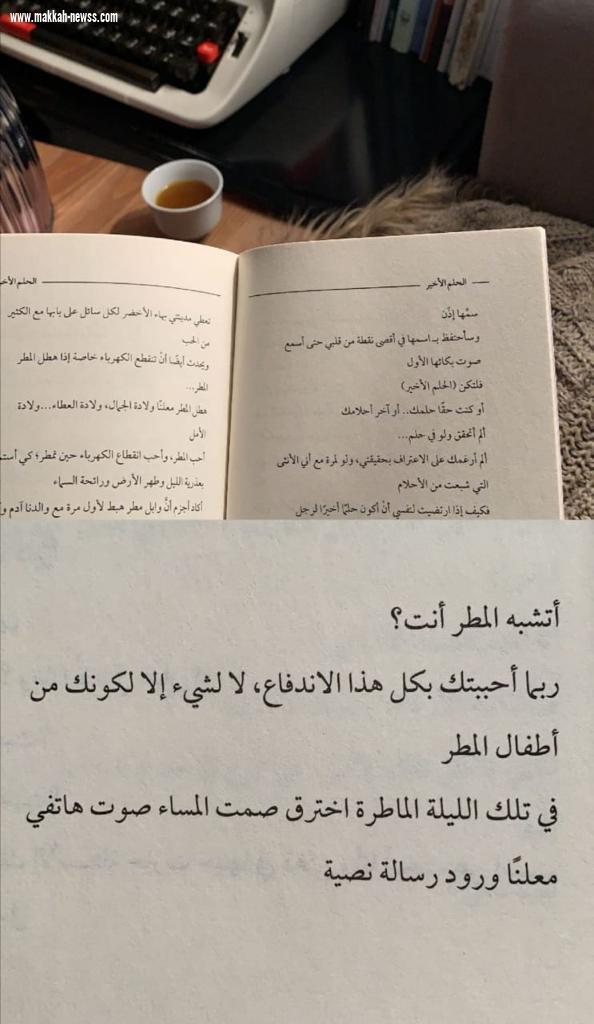 www.makkah-newss.com
الحلم الأخير
سمِّها إذًن
وسأحتفظ بـ اسمها في أقصى نقطة من قلبي حتى أسمع
صوت بكائها الأول
فلتكن (الحلم الأخير)
أو كنت حقًا حلمك.. أو آخر أحلامك
ألم أتحقق ولو في حلم...
ألم أرغمك على الاعتراف بحقيقتي، ولو لمرة مع أني الأنثى
التي شبعت من الأحلام
فكيف إذا ارتضيت لنفسي أنْ أكون حلمًا أخيرًا لرجل
الحلم الأخير
تعطي مدينتي بهاء الأخضر لكل سائل على بابها مع الكثير
من الحب
ويحدث أيضًا أنْ تنقطع الكهرباء خاصة إذا هطل المطر
المطر...
هطل المطر معلنًا ولادة الجمال، ولادة العطاء...ولادة
الأمل
أحب المطر، وأحب انقطاع الكهرباء حين تمطر؛ كي
بعذرية الليل وطهر الأرض ورائحة السماء
أكاد أجزم أنَّ وابل مطر هبط لأول مرة مع والدنا آدم
أتشبه المطر أنت؟
ربما أحببتك بكل هذا الاندفاع، لا لشيء إلا لكونك من
أطفال المطر
في تلك الليلة الماطرة اخترق صمت المساء صوت هاتفي
معلنًا ورود رسالة نصية